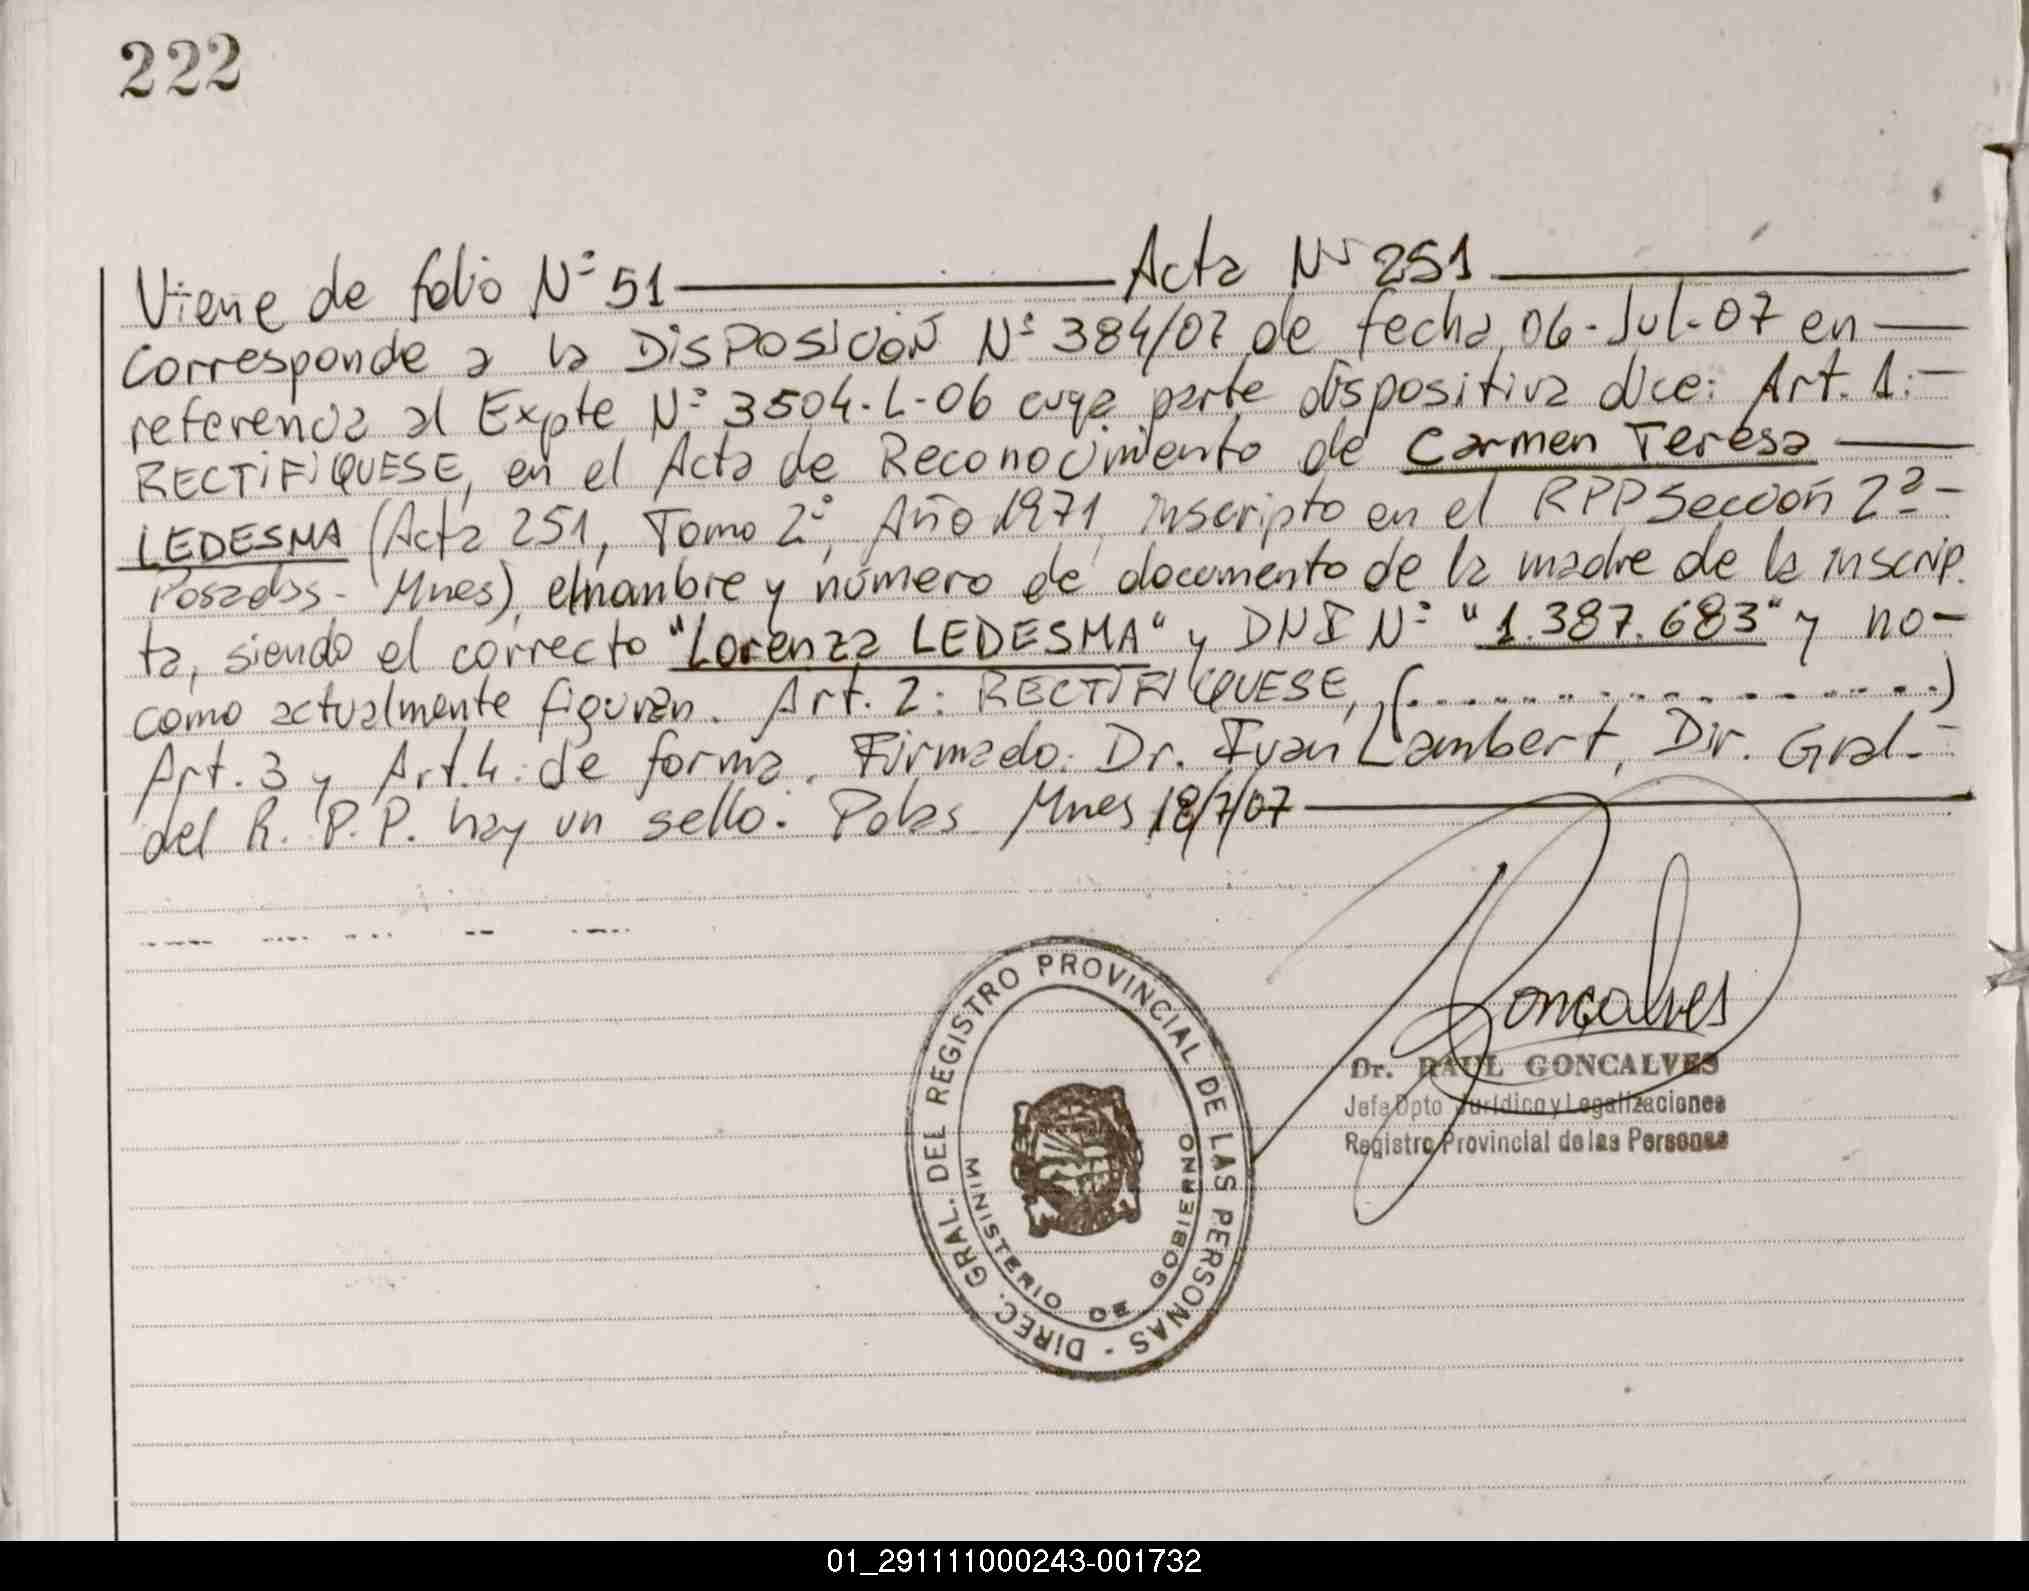 222
Viene de folio Nº 51 ———— Acta Nº 251 ————
Corresponde a la DISPOSICIÓN Nº 384/07 de fecha 06-Jul-07 en —
referencia al Expte Nº 3504-L-06 cuya parte dispositiva dice: Art. 1:-
RECTIFIQUESE, en el Acta de Reconocimiento de Carmen Teresa —
LEDESMA (Acta 251, Tomo 2º, Año 1971, inscripto en el RPP Sección 2ª-
Posadas- Mnes), el nombre y número de documento de la madre de la inscrip.
ta, siendo el correcto "Lorenza LEDESMA" y DNI Nº "1.387.683" y no-
como actualmente figuran. Art. 2: RECTIFIQUESE, (....................)
Art. 3 y Art. 4: de forma. Firmado: Dr. Ivan Lambert, Dir. Gral.-
del R. P. P. hay un sello. Pdas. Mnes 18/7/07 ————
Goncalves
Dr. RAUL GONCALVES
Jefe Dpto Jurídico y Legalizaciones
Registro Provincial de las Personas
DIREC. GRAL. DEL REGISTRO PROVINCIAL DE LAS PERSONAS -
MINISTERIO DE GOBIERNO
01_291111000243-001732